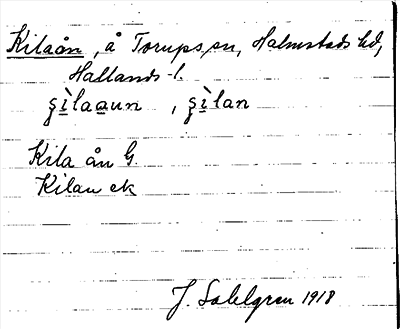 Kilaån, å Torups sn, Halmstads hd,
Hallands l.
ꞩìlaaun, ꞩìlan
Kila ån G.
Kilan ek
J. Sahlgren 1918